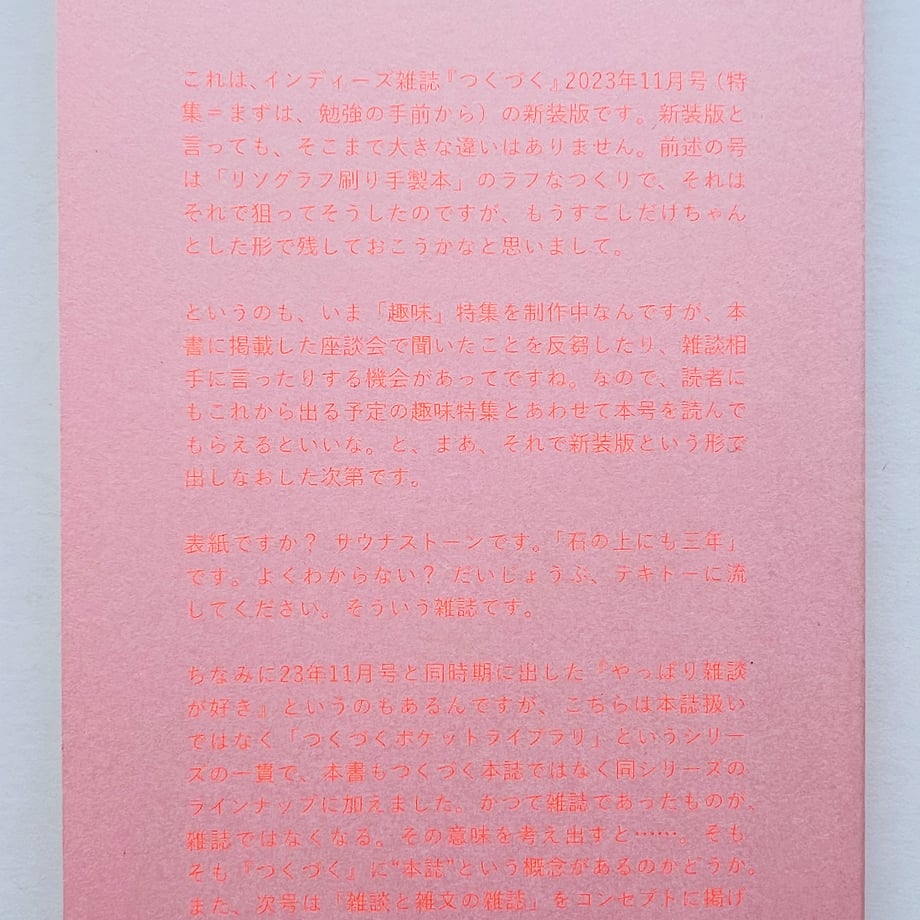 これは、インディーズ雑誌『つくづく』2023年11月号（特
集＝まずは、勉強の手前から）の新装版です。新装版と
言っても、そこまで大きな違いはありません。前述の号
は「リソグラフ刷り手製本」のラフなつくりで、それは
それで狙ってそうしたのですが、もうすこしだけちゃん
とした形で残しておこうかなと思いまして。
というのも、いま「趣味」特集を制作中なんですが、本
書に掲載した座談会で聞いたことを反芻したり、雑談相
手に言ったりする機会があってですね。なので、読者に
もこれから出る予定の趣味特集とあわせて本号を読んで
もらえるといいな。と、まあ、それで新装版という形で
出しなおした次第です。
表紙ですか？ サウナストーンです。「石の上にも三年」
です。よくわからない？ だいじょうぶ、テキトーに流
してください。そういう雑誌です。
ちなみに23年11月号と同時期に出した『やっぱり雑談
が好き』というのもあるんですが、こちらは本誌扱い
ではなく「つくづくポケットライブラリ」というシリー
ズの一貫で、本書もつくづく本誌ではなく同シリーズの
ラインナップに加えました。かつて雑誌であったものが、
雑誌ではなくなる。その意味を考え出すと……。そも
そも『つくづく』に“本誌”という概念があるのかどうか。
また、次号は「雑談と雑文の雑誌」をコンセプトに掲げ